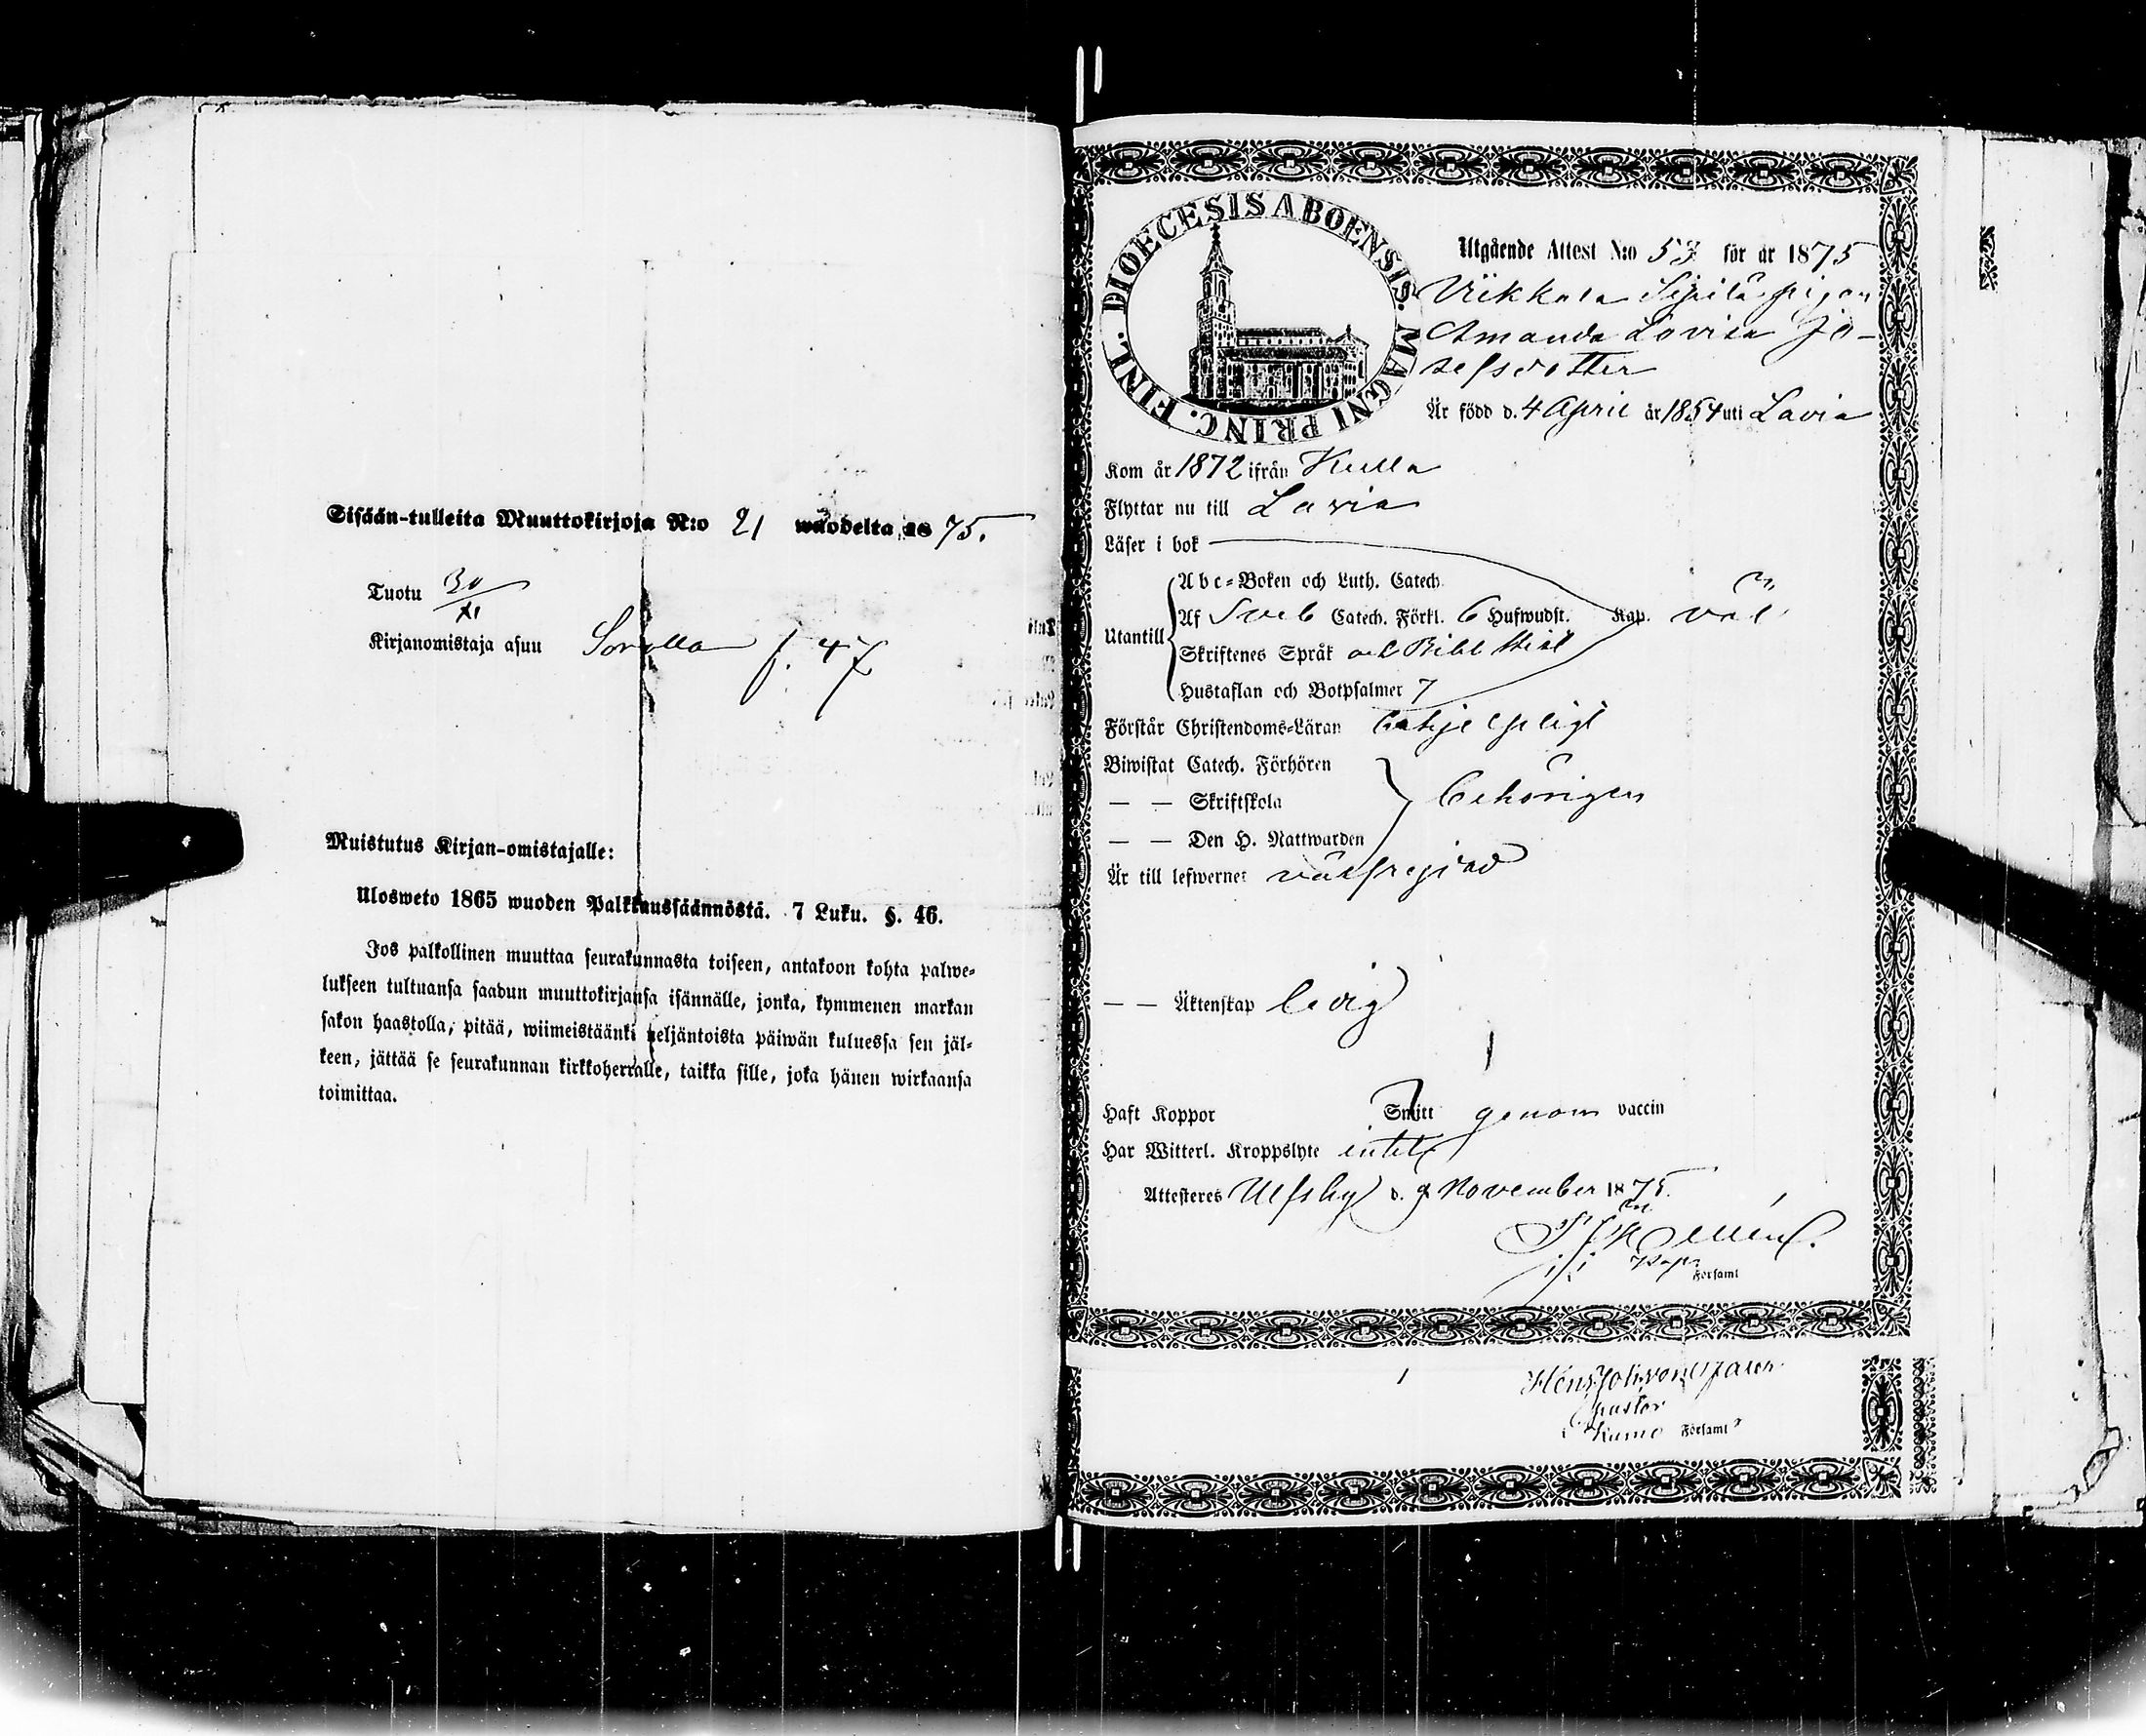 Sisään-tulleita Muuttokirjoja N:o 21 wuodelta 1875.
Tuotu 30/XI
Kirjanomistaja asuu Sorolla f. 47
Muistutus Kirjan-omistajalle:
Ulosweto 1865 wuoden Palkkaussäännöstä. 7 Luku. §. 46.
Jos palkollinen muuttaa seurakunnasta toiseen, antakoon kohta palwe-
lukseen tultuansa saadun muuttokirjansa isännälle, jonka, kymmenen markan
sakon haastolla, pitää, wiimeistäänki neljäntoista päiwän kuluessa sen jäl-
keen, jättää se seurakunnan kirkkoherralle, taikka sille, joka hänen wirkaansa
toimittaa.
DIOECESIS ABOENSIS. MAGNI PRINC. FINL.
Utgående Attest N:o 53 för år 1875
Viikkala Sipilä pigan
Amanda Lovisa Jo-
sefsdotter
Är född d. 4 April år 1854 uti Lavia
Kom år 1872 ifrån Kulla
Flyttar nu till Lavia
Läser i bok
Utantill
Abc-Boken och Luth. Catech.
Af Sveb Catech. Förkl. 6 Hufwudst. Kap. väl
Skriftenes Språk och Bibl Hist
Hustaflan och Botpsalmer 7
Förstår Christendoms-Läran
Biwistat Catech. Förhören
— — Skriftskola behörigen
— — Den H. Nattwarden
Är till lefwernet välfrejdad
— — Äktenskap ledig
Haft Koppor Smitt genom vaccin
Har Witterl. Kroppslyte intet
Attesteres Ulfsby d. 9 November 1875.
Församl
pastor
Kumo Församl